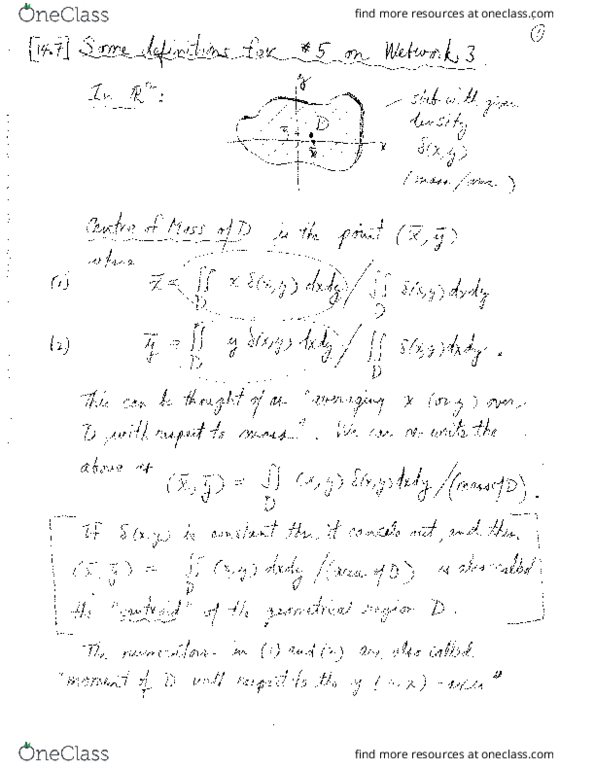 OneClass
find more resources at oneclass.com
①
[14.7] Some definitions for #5 on Wetwork 3.
In ℝ²:
y
slab with given
D
density
ȳ
x̄
x
δ(x,y)
(mass/area)
Centre of Mass of D is the point (x̄, ȳ)
where
(1) x̄ = ∬_D x δ(x,y) dxdy / ∬_D δ(x,y) dxdy
(2) ȳ = ∬_D y δ(x,y) dxdy / ∬_D δ(x,y) dxdy.
This can be thought of as "averaging x (or y) over
D, with respect to mass". We can re-write the
above as
(x̄, ȳ) = ∬_D (x,y) δ(x,y) dxdy / (mass of D).
If δ(x,y) is constant then it cancels out, and then
(x̄, ȳ) = ∬_D (x,y) dxdy / (area of D) is also called
the "centroid" of the geometrical region D.
The numerators in (1) and (2) are also called
"moment of D with respect to the y (or x)-axis"
OneClass
find more resources at oneclass.com